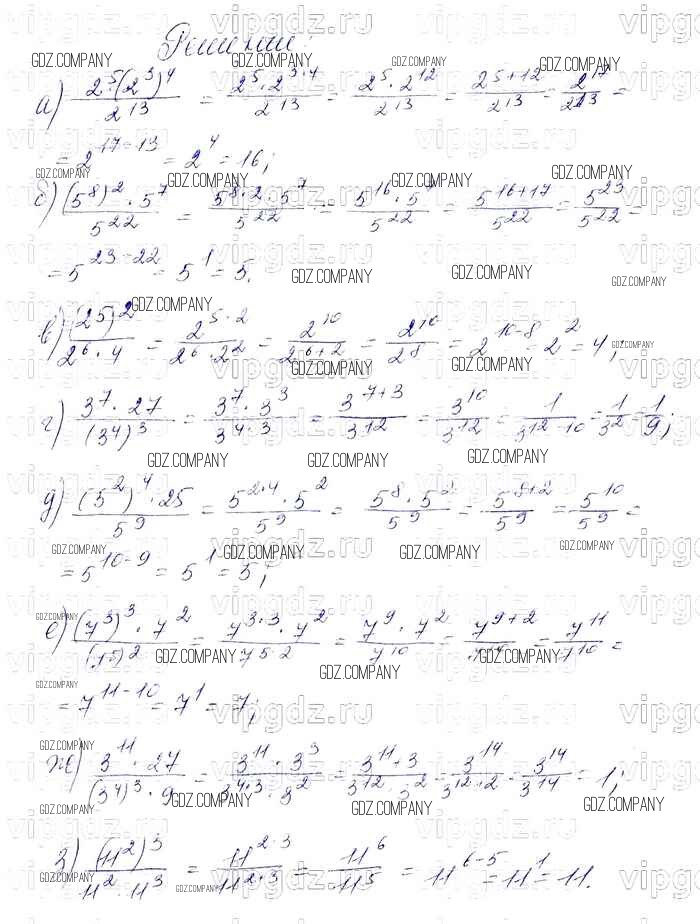 Решение
а) 2^5·(2^3)^4 / 2^13 = 2^5·2^3·4 / 2^13 = 2^5·2^12 / 2^13 = 2^5+12 / 2^13 = 2^17 / 2^13 =
= 2^17-13 = 2^4 = 16;
б) (5^8)^2·5^7 / 5^22 = 5^8·2·5^7 / 5^22 = 5^16·5 / 5^22 = 5^16+17 / 5^22 = 5^23 / 5^22 =
= 5^23-22 = 5^1 = 5.
в) (25)^2 / 2^6·4 = 2^5·2 / 2^6·2^2 = 2^10 / 2^6+2 = 2^10 / 2^8 = 2^10-8 = 2^2 = 4;
г) 3^7·27 / (3^4)^3 = 3^7·3^3 / 3^4·3 = 3^7+3 / 3^12 = 3^10 / 3^12 = 1 / 3^12-10 = 1 / 3^2 = 1 / 9;
д) (5^2)^4·25 / 5^9 = 5^2·4·5^2 / 5^9 = 5^8·5^2 / 5^9 = 5^8+2 / 5^9 = 5^10 / 5^9 =
= 5^10-9 = 5^1 = 5;
е) (7^3)^3·7^2 / (75)^2 = 7^3·3·7^2 / 7^5·2 = 7^9·7^2 / 7^10 = 7^9+2 / 7^10 = 7^11 / 7^10 =
= 7^11-10 = 7^1 = 7;
ж) 3^11·27 / (3^4)^3·9 = 3^11·3^3 / 3^4·3·3^2 = 3^11+3 / 3^12·3^2 = 3^14 / 3^12+2 = 3^14 / 3^14 = 1;
з) (11^2)^3 / 11^2·11^3 = 11^2·3 / 11^2+3 = 11^6 / 11^5 = 11^6-5 = 11^1 = 11.
GDZ.COMPANY
vipgdz.ru